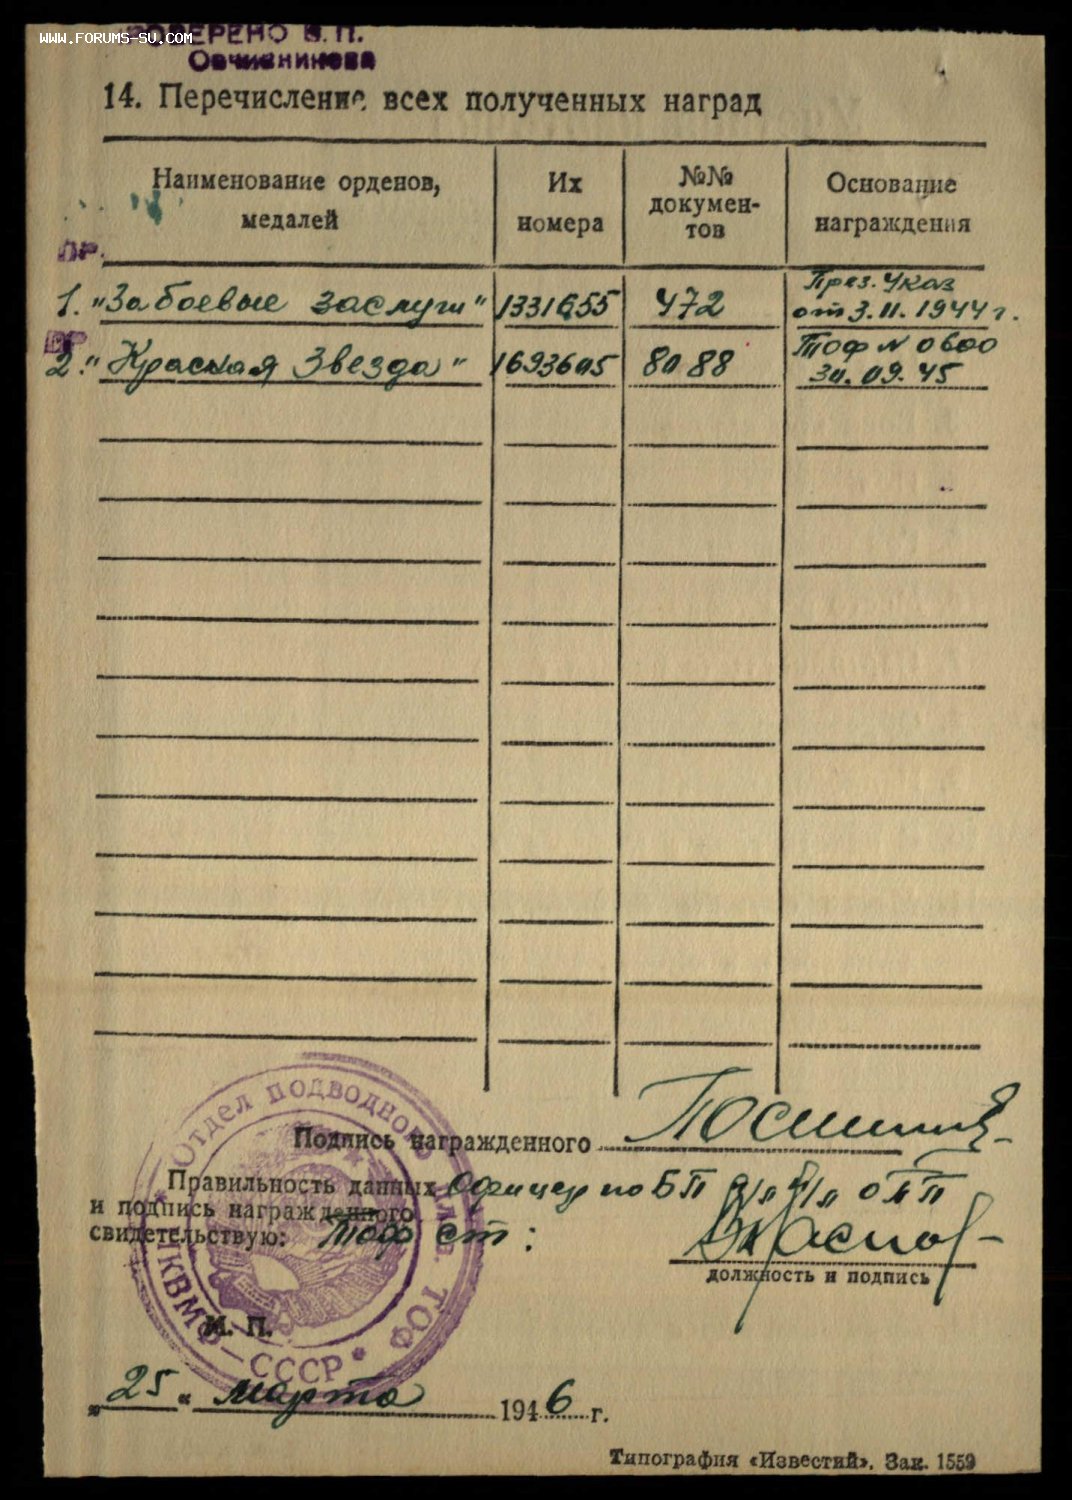 WWW.FORUMS-SU.COM
ПРОВЕРЕНО В. П.
14. Перечисление всех полученных наград
Наименование орденов, медалей
Их номера
№№ документов
Основание награждения
ПР.
1. "За боевые заслуги" 1331655 472 През. Указ от 3.11.1944 г.
ВР
2. "Красная Звезда" 1693605 8088 ТОФ N 0600 30.09.45
Подпись награжденного
Правильность данных Офицер по БП
и подпись награжденного
свидетельствую: ТОФ ст:
должность и подпись
Отдел подводного ТОФ
НКВМФ — СССР
М. П.
„25" марта 1946 г.
Типография «Известий». Зак. 1559